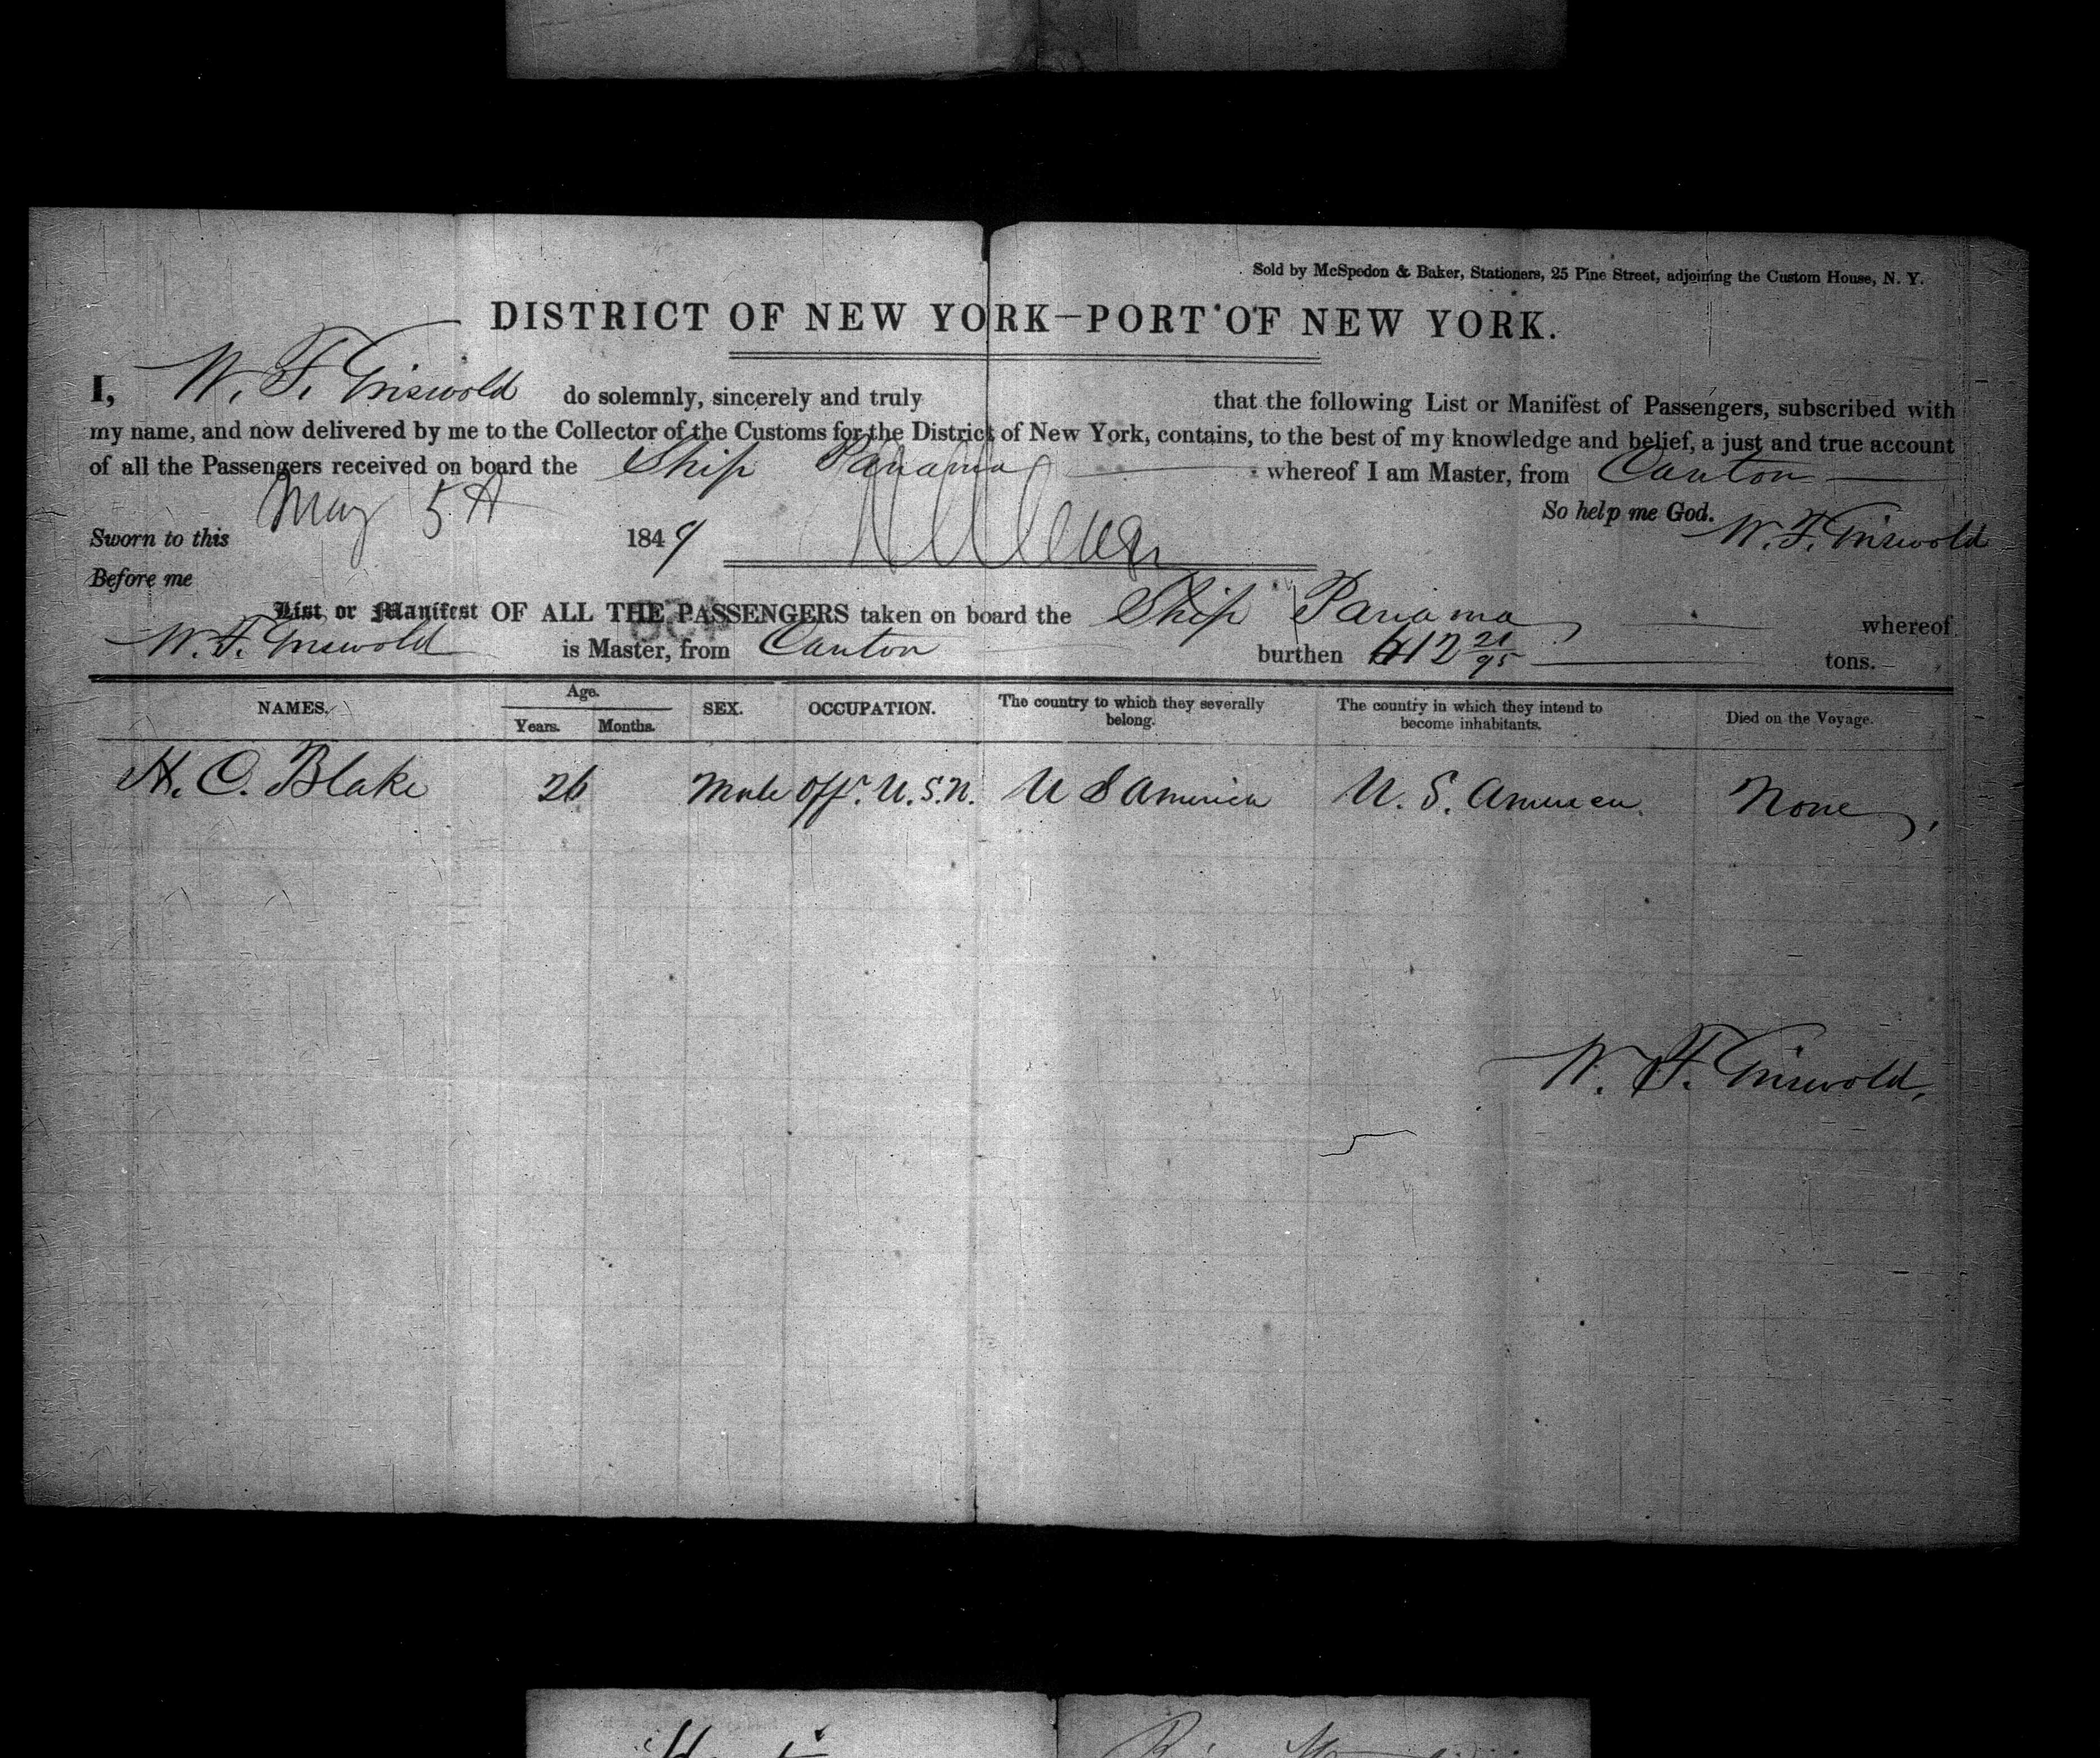 Sold by McSpedon & Baker, Stationers, 25 Pine Street, adjoining the Custom House, N. Y.
DISTRICT OF NEW YORK—PORT OF NEW YORK.
I, W. F. Griswold do solemnly, sincerely and truly that the following List or Manifest of Passengers, subscribed with
my name, and now delivered by me to the Collector of the Customs for the District of New York, contains, to the best of my knowledge and belief, a just and true account
of all the Passengers received on board the Ship Panama whereof I am Master, from Canton
So help me God. W. F. Griswold
Sworn to this May 5th 1849
Before me
List or Manifest OF ALL THE PASSENGERS taken on board the Ship Panama whereof
W. F. Griswold is Master, from Canton burthen 612 21/95 tons.
NAMES. Age. Years. Months. SEX. OCCUPATION. The country to which they severally belong. The country in which they intend to become inhabitants. Died on the Voyage.
H. C. Blake 26 Male Offr. U.S.N. U S America U. S. America None
W. F. Griswold.